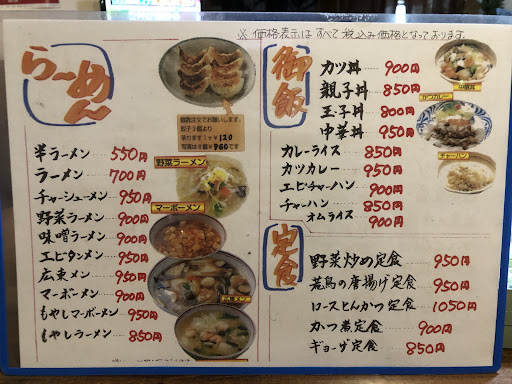 ※ 価格表示は すべて 税込み価格となっております。
らーめん
個数注文でお願いします。
餃子3個より
承ります 1ヶ¥120
写真は8個¥960です
半ラーメン 550円
ラーメン 700円
チャーシューメン 950円
野菜ラーメン 900円
味噌ラーメン 900円
エビタンメン 950円
広東メン 950円
マーボーメン 900円
もやしマーボーメン 950円
もやしラーメン 850円
野菜ラーメン
マーボーメン
御飯
カツ丼 900円
親子丼 850円
玉子丼 800円
中華丼 950円
カレーライス 850円
カツカレー 950円
エビチャーハン 900円
チャーハン 850円
オムライス 900円
中華丼
カツカレー
チャーハン
定食
野菜炒め定食 950円
若鳥の唐揚げ定食 950円
ロースとんかつ定食 1050円
かつ煮定食 900円
ギョーザ定食 850円